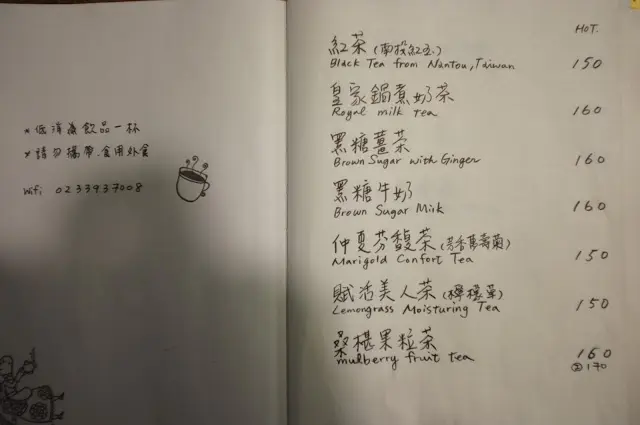 *低消為飲品一杯
*請勿攜帶.食用外食
Wifi 0233937008
HOT.
紅茶(南投紅玉) 150
Black Tea from Nantou, Taiwan
皇家鍋煮奶茶 160
Royal milk tea
黑糖薑茶 160
Brown Sugar with Ginger
黑糖牛奶 160
Brown Sugar Milk
仲夏芬馥茶(芳香萬壽菊) 150
Marigold Confort Tea
賦活美人茶(檸檬草) 150
Lemongrass Moisturing Tea
桑椹果粒茶 160
mulberry fruit tea
170